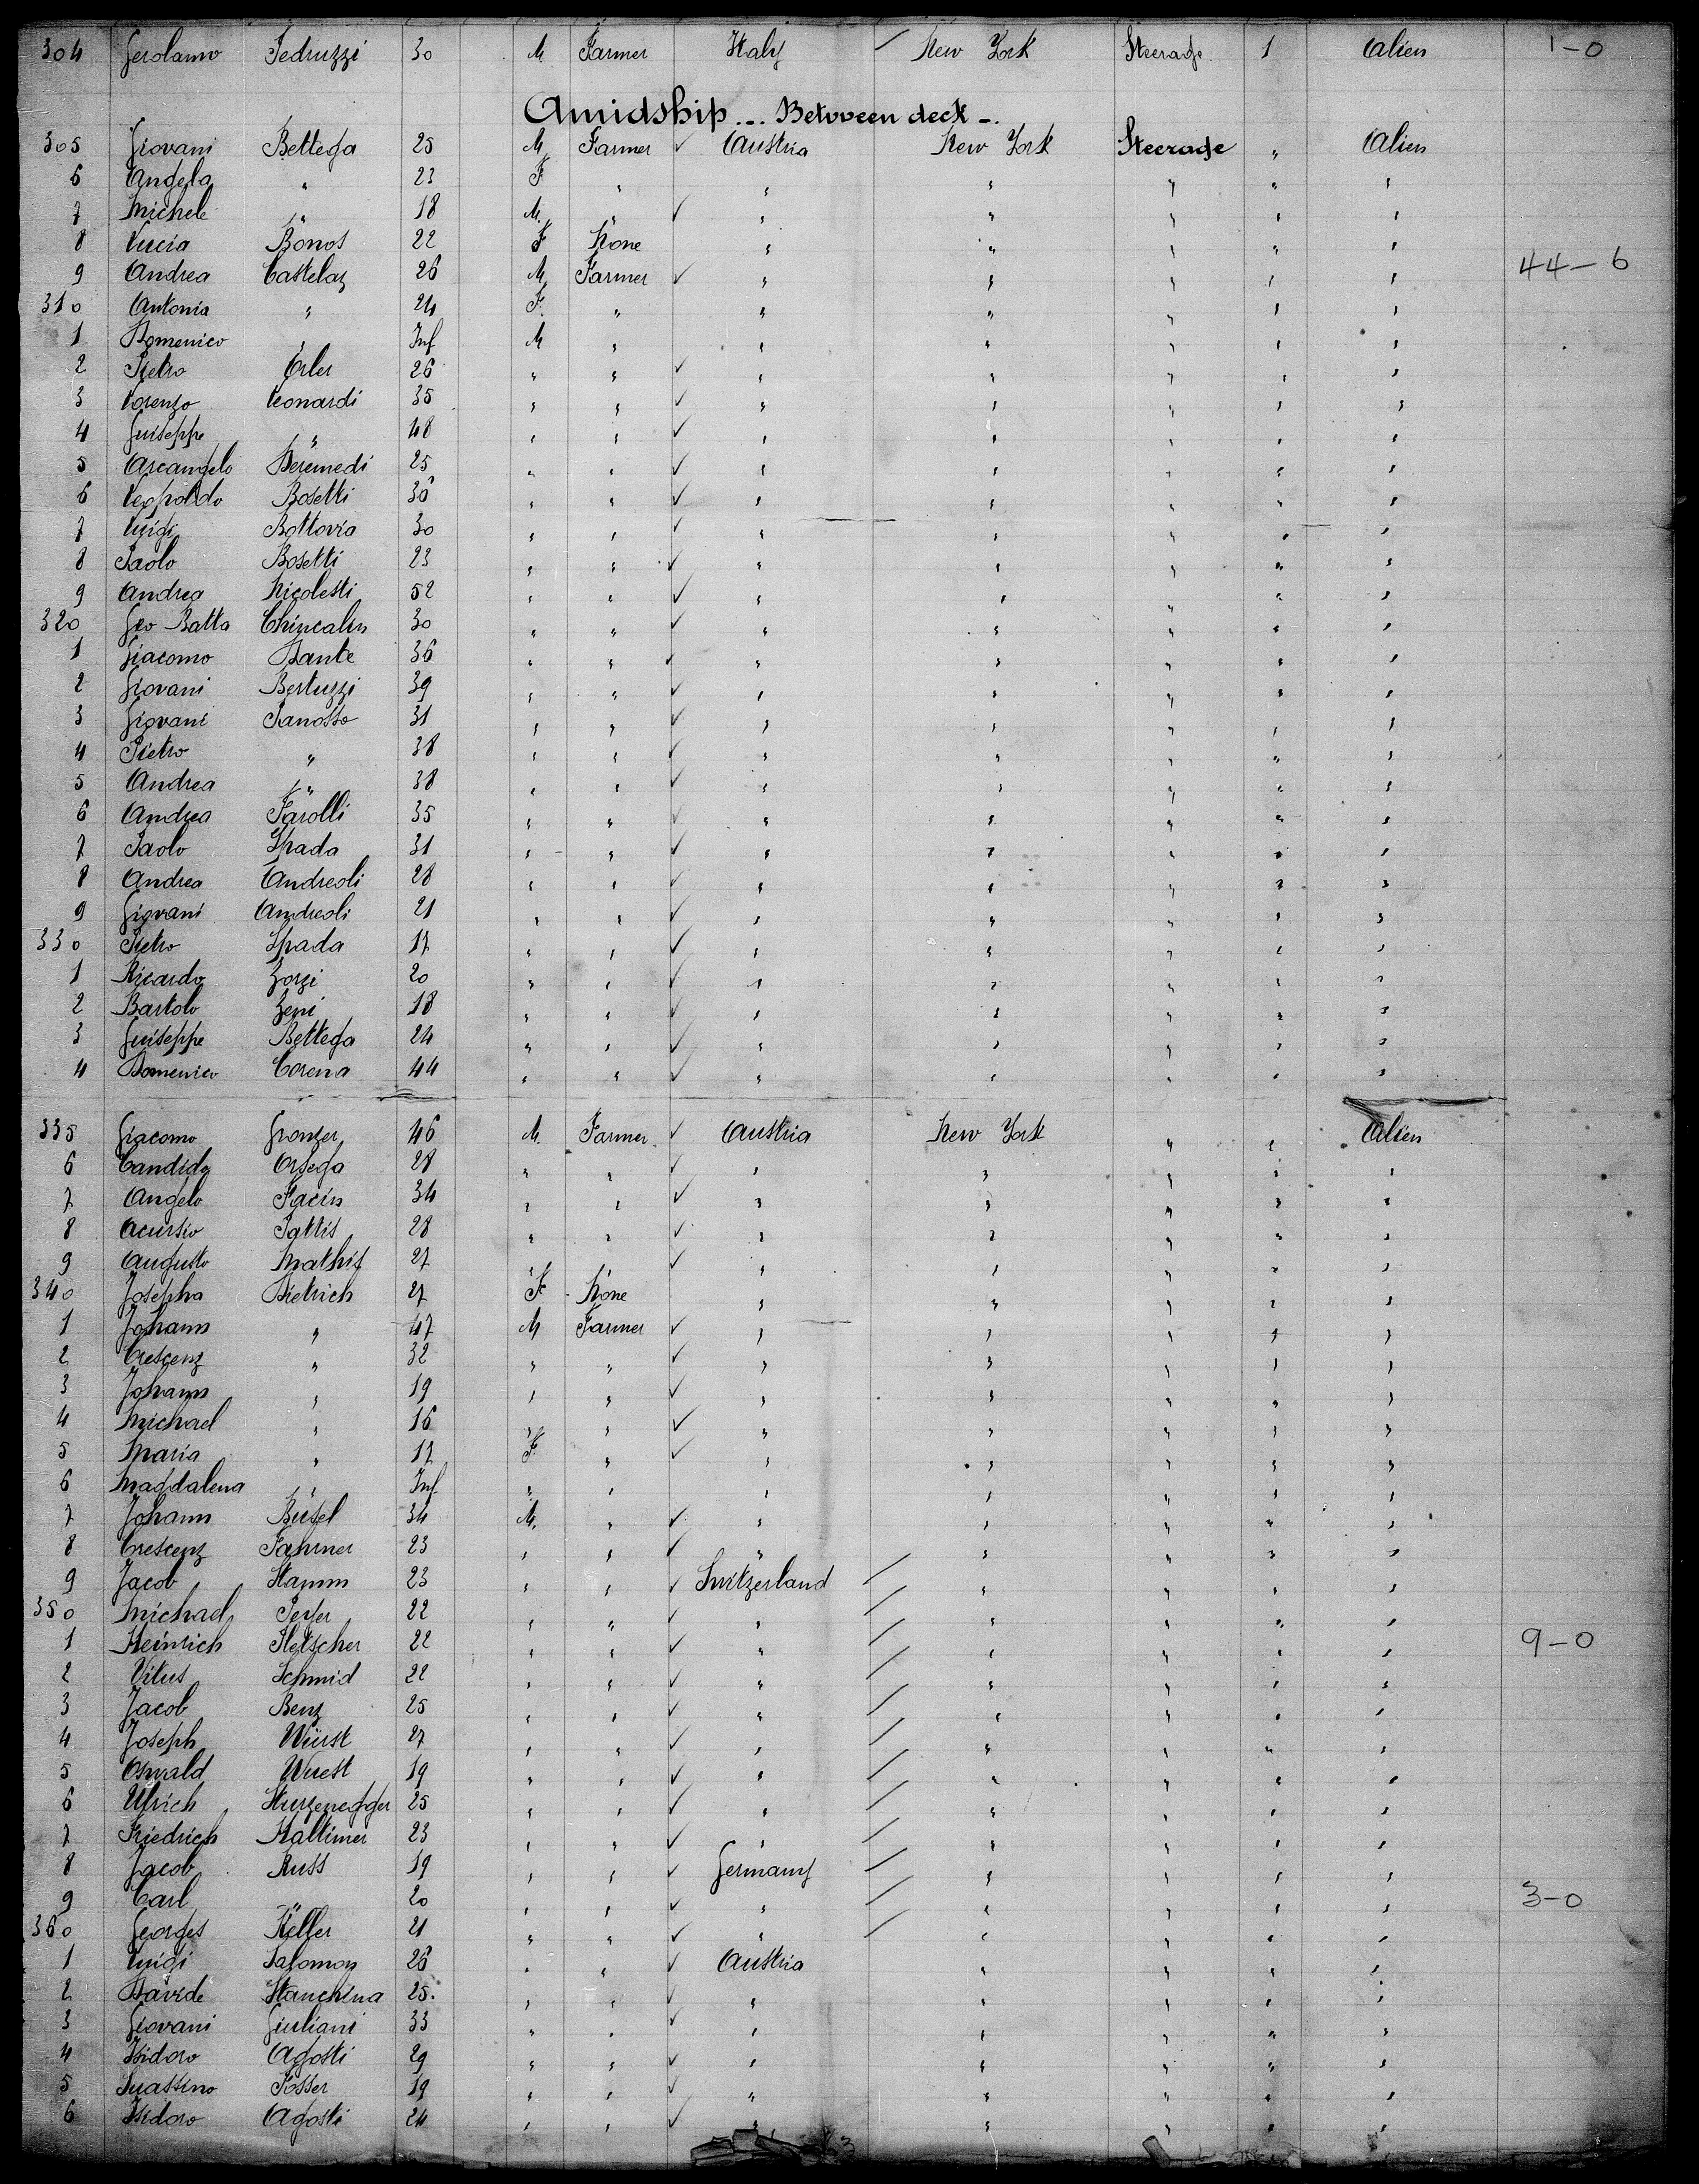 304 Gerolamo Pedruzzi 30 M Farmer Italy / New York Steerage 1 Alien 1-0
Amidship... Between deck -.
305 Giovani Bettega 25 M Farmer ✓ Austria New York Steerage " Alien
6 Angela " 23 F " " " " " "
7 Michele " 18 M. " ✓ " " " " "
8 Lucia Bonos 22 F None " " " " "
9 Andrea Castelaz 26 M Farmer ✓ " " " " " 44-6
310 Antonia " 24 F. " " " " " "
1 Domenico " Inf M " " " " " "
2 Pietro Orler 26 " " ✓ " " " " "
3 Lorenzo Leonardi 35 " " ✓ " " " " "
4 Guiseppe " 48 " " ✓ " " " " "
5 Arcangelo Beremedi 25 " " ✓ " " " " "
6 Leopoldo Bosetti 36 " " ✓ " " " " "
7 Luigi Bottovia 30 " " ✓ " " " " "
8 Paolo Bosetti 23 " " ✓ " " " " "
9 Andrea Nicoletti 52 " " ✓ " " " " "
320 Geo Batta Chincalin 30 " " ✓ " " " " "
1 Giacomo Dante 36 " " ✓ " " " " "
2 Giovani Bertuzzi 39 " " ✓ " " " " "
3 Giovani Panosso 31 " " ✓ " " " " "
4 Pietro " 38 " " ✓ " " " " "
5 Andrea " 38 " " ✓ " " " " "
6 Andrea Farolli 35 " " ✓ " " " " "
7 Paolo Spada 31 " " ✓ " " " " "
8 Andrea Andreoli 28 " " ✓ " " " " "
9 Giovani Andreoli 21 " " ✓ " " " " "
330 Pietro Spada 17 " " ✓ " " " " "
1 Ricardo Zorzi 20 " " ✓ " " " " "
2 Bartolo Zeni 18 " " ✓ " " " " "
3 Guiseppe Bettega 24 " " ✓ " " " " "
4 Domenico Corena 44 " " ✓ " " " " "
335 Giacomo Gronzer 46 M. Farmer ✓ Austria New York " " Alien
6 Candido Orsega 28 " " ✓ " " " " "
7 Angelo Facin 34 " " ✓ " " " " "
8 Acursio Pattis 28 " " ✓ " " " " "
9 Augusto Mathis 27 " " ✓ " " " " "
340 Josepha Dietrich 27 F None " " " " "
1 Johann " 47 M Farmer ✓ " " " " "
2 Crescenz " 32 " " ✓ " " " " "
3 Johann " 19 " " ✓ " " " " "
4 Michael " 16 " " ✓ " " " " "
5 Maria " 17 F. " ✓ " " " " "
6 Maddalena " Inf " " " " " " "
7 Johann Büsel 34 M. " ✓ " " " " "
8 Crescenz Fahrner 23 " " ✓ " " " " "
9 Jacob Stamm 23 " " ✓ Switzerland / " " " "
350 Michael 22 " " ✓ " / " " " "
1 Heinrich Pletscher 22 " " ✓ " / " " " " 9-0
2 Vitus Schmid 22 " " ✓ " / " " " "
3 Jacob Benz 25 " " ✓ " / " " " "
4 Joseph Würst 27 " " ✓ " / " " " "
5 Oswald Wuest 19 " " ✓ " / " " " "
6 Ulrich Sturzenegger 25 " " ✓ " / " " " "
7 Friedrich Haltimer 23 " " ✓ " / " " " "
8 Jacob Russ 19 " " ✓ Germany / " " " "
9 Carl " 20 " " ✓ " / " " " " 3-0
360 Georges Keller 21 " " ✓ " / " " " "
1 Luigi Salomon 26 " " ✓ Austria " " " "
2 Davide Stanchina 25. " " ✓ " " " " "
3 Giovani Giuliani 33 " " ✓ " " " " "
4 Isidoro Agosti 29 " " ✓ " " " " "
5 Suassino Fosser 19 " " ✓ " " " " "
6 Isidoro Agosti 24 " " ✓ " " " " "